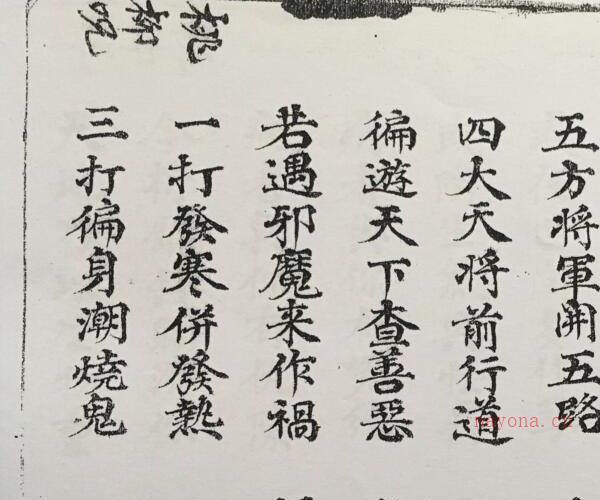 五方将軍開五路
四大天将前行道
徧遊天下查善惡
若遇邪魔来作禍
一打發寒併發熱
三打徧身潮燒鬼
nayona.cn